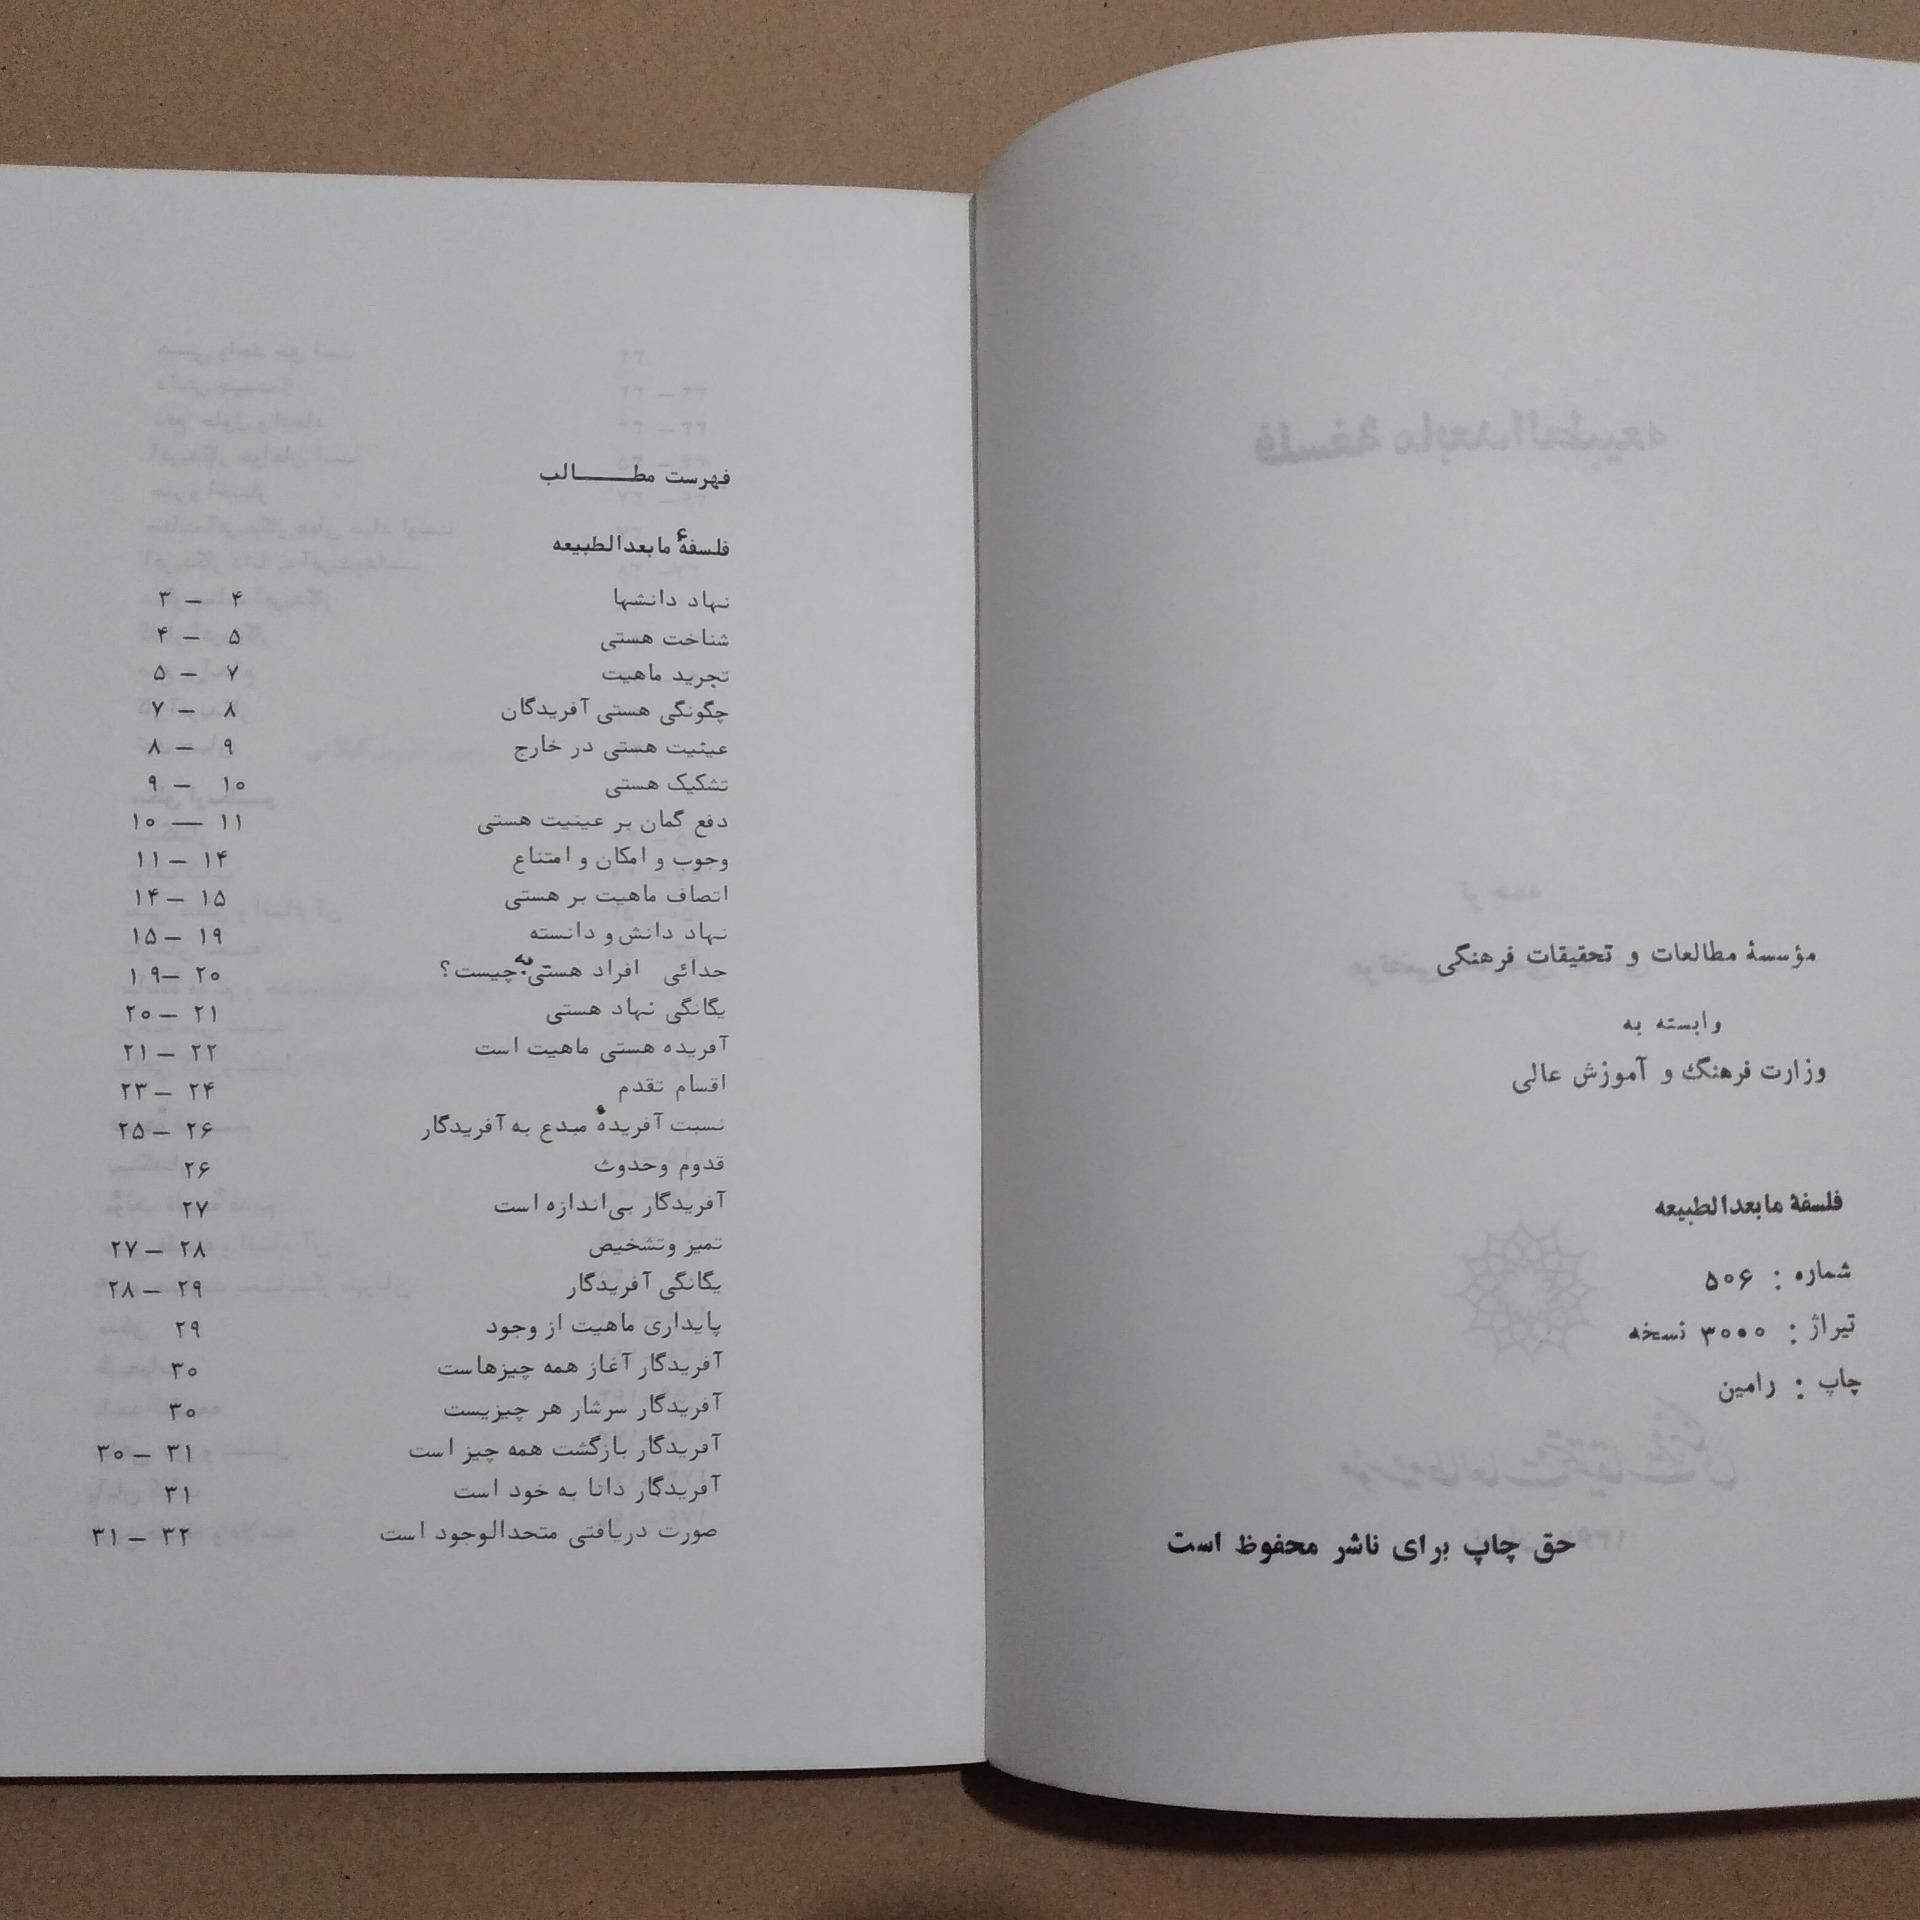 مؤسسهٔ مطالعات و تحقیقات فرهنگی
وابسته به
وزارت فرهنگ و آموزش عالی
فلسفهٔ مابعدالطبیعه
شماره : ۵۰۶
تیراژ : ۳۰۰۰ نسخه
چاپ : رامین
حق چاپ برای ناشر محفوظ است
فهرست مطالب
فلسفهٔ مابعدالطبیعه
نهاد دانشها ۴ – ۳
شناخت هستی ۵ – ۴
تجرید ماهیت ۷ – ۵
چگونگی هستی آفریدگان ۸ – ۷
عیثیت هستی در خارج ۹ – ۸
تشکیک هستی ۱۰ – ۹
دفع گمان بر عینیت هستی ۱۱ – ۱۰
وجوب و امکان و امتناع ۱۴ – ۱۱
اتصاف ماهیت بر هستی ۱۵ – ۱۴
نهاد دانش و دانسته ۱۹ – ۱۵
جدائی افراد هستی به چیست؟ ۲۰ – ۱۹
یگانگی نهاد هستی ۲۱ – ۲۰
آفریده هستی ماهیت است ۲۲ – ۲۱
اقسام تقدم ۲۴ – ۲۳
نسبت آفریدهٔ مبدع به آفریدگار ۲۶ – ۲۵
قدوم وحدوث ۲۶
آفریدگار بی‌اندازه است ۲۷
تمیز وتشخیص ۲۸ – ۲۷
یگانگی آفریدگار ۲۹ – ۲۸
پایداری ماهیت از وجود ۲۹
آفریدگار آغاز همه چیزهاست ۳۰
آفریدگار سرشار هر چیزیست ۳۰
آفریدگار بازگشت همه چیز است ۳۱ – ۳۰
آفریدگار دانا به خود است ۳۱
صورت دریافتی متحدالوجود است ۳۲ – ۳۱